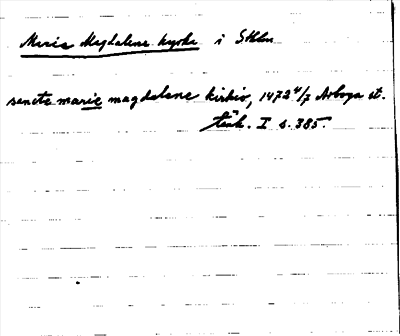 Maria Magdalena kyrka i Sthlm
sancte marie magdalene kirkio, 1472 4/7 Arboga st.
tänk. I s. 385.